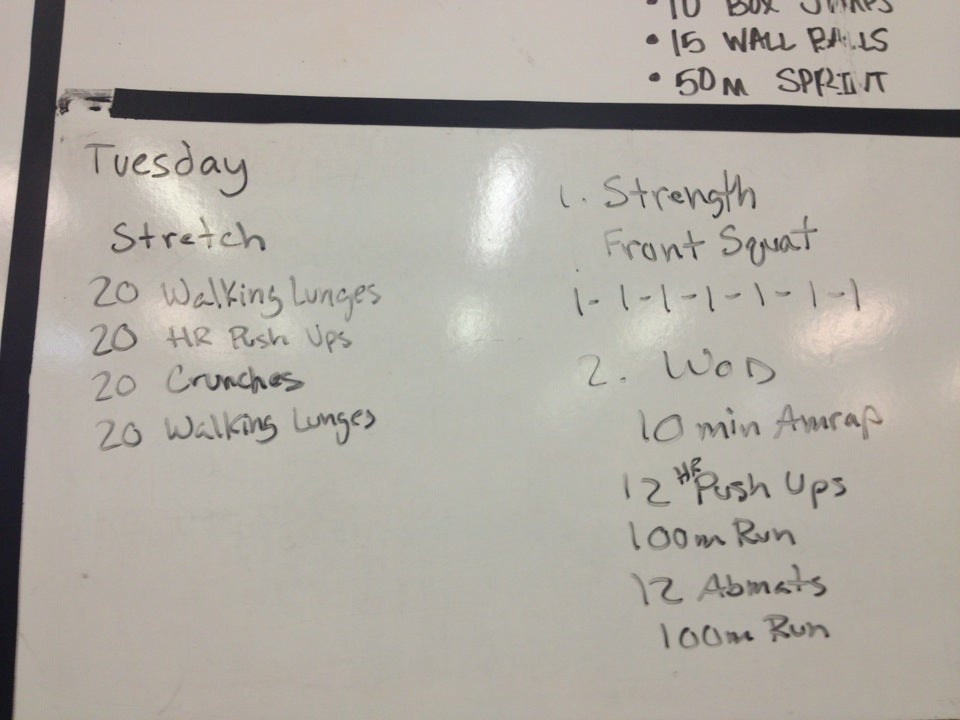 • 10 BOX JUMPS
• 15 WALL BALLS
• 50M SPRINT
Tuesday
Stretch
20 Walking Lunges
20 HR Push Ups
20 Crunches
20 Walking Lunges
1. Strength
Front Squat
1-1-1-1-1-1-1
2. WOD
10 min Amrap
12 HR Push Ups
100m Run
12 Abmats
100m Run